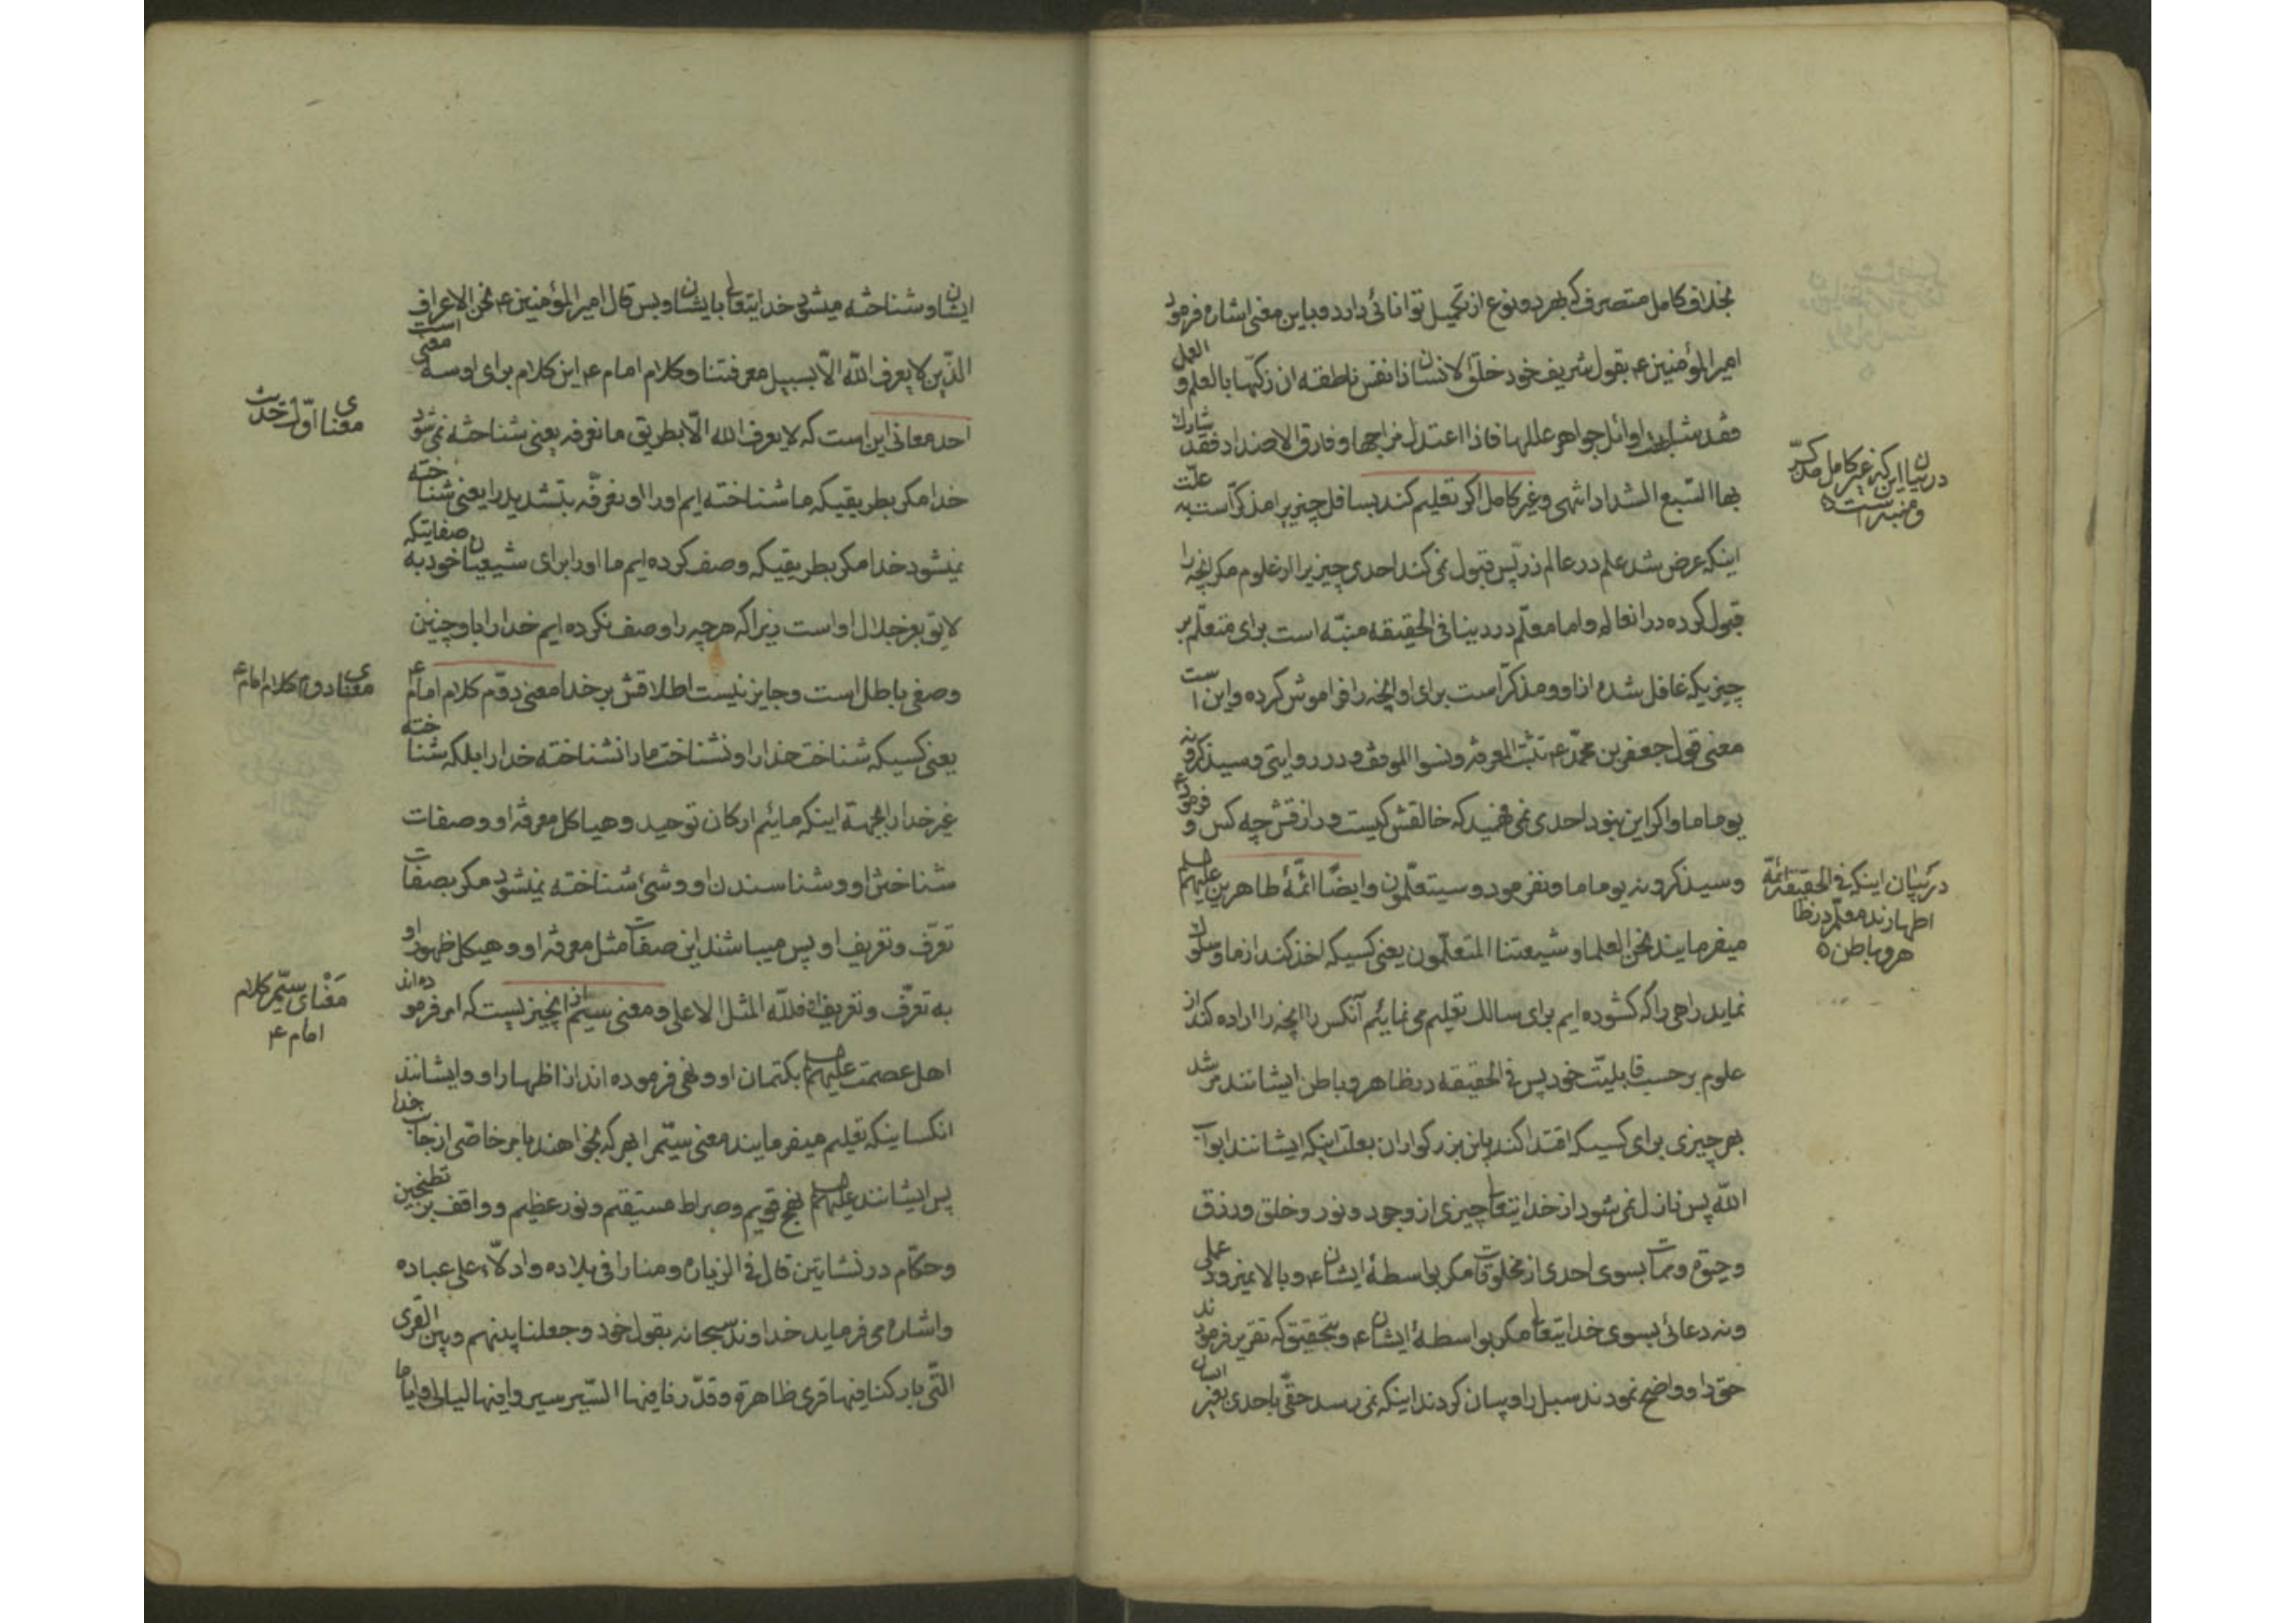 بخلاف کامل متصرف که بهر دو نوع از تکمیل توانائی دارد و باین معنی اشاره فرمود
امیرالمؤمنین ع بقول شریف خود خلق الانسان ذا نفس ناطقه ان زکیها بالعلم و العمل
فقد شابهت اوائل جواهر عللها فاذا اعتدل مزاجها و فارق الاضداد فقد شارک
بها السبع الشداد انتهی و غیر کامل اگر تعلیم کند بسافل چیزیرا مذکر است به علّت
اینکه عرض شد علم در عالم ذرّ پس قبول نمی کند احدی چیزیرا از علوم مکر آنچه را
قبول کرده در انعالم و اما معلّم در دینا فی الحقیقه منبّه است برای متعلّم بر
چیزیکه غافل شده از او و مذکّر است برای او آنچه را فراموش کرده و این است
معنی قول جعفر بن محمّد ع تثبت المعرفه و نسوا الموقف و در روایتی و سیذکرونه
یوما ما و اکر این نبود احدی نمی فهمید که خالقش کیست و رازقش چه کس و فرمود ع
و سیذکرونه یوما ما و نفرمود و سیتعلّمون و ایضًا ائمّهٔ طاهرین علیهم
میفرمایند نحن العلما و شیعتنا المتعلّمون یعنی کسیکه اخذ کند از ما و سلوک
نماید راهی را که کشوده ایم برای سالک تعلیم می نمائیم آنکس را آنچه را اراده کند از
علوم بر حسب قابلیّت خود پس فی الحقیقه در ظاهر و باطن ایشانند مرشد
بهر چیزی برای کسیکه اقتدا کند باین بزرکواران بعلت اینکه ایشانند ابواب
الله پس نازل نمی شود از خدایتعالی چیزی از وجود و نور و خلق و رزق
و حیوة و ممات بسوی احدی از مخلوقات مکر بواسطهٔ ایشان ع و بالا نمیرود عملی
و نه دعائی بسوی خدایتعالی مکر بواسطهٔ ایشان ع و بتحقیق که تقریر فرمودند
حق را و واضح نمودند سبل را و بیان کردند اینکه نمی رسد حقّی باحدی بغیر ایشان
در بیان این که غیر کامل مذکّر
و منبه است
در بیان اینکه فی الحقیقه ائمّه
اطهارند معلّم در ظا
هر و باطن
ایشان و شناخته میشود خدایتعالی بایشان و بس قال امیرالمؤمنین ع نحن الاعراف
الذّین لا یعرف الله الّا بسبیل معرفتنا و کلام امام ع این کلام برای او سه معنی است
احد معانی این است که لا یعرف الله الّا بطریق ما نعرفه یعنی شناخته نمی شود
خدا مکر بطریقیکه ما شناخته ایم او را او نعرّفه بتشدید را یعنی شناخته
نمیشود خدا مکر بطریقیکه وصف کرده ایم ما او را برای شیعیان خود به صفاتیکه
لایق بعز جلال او است زیرا که هر چه را وصف نکرده ایم خدا را با و چنین
وصفی باطل است و جایز نیست اطلاقش بر خدا معنی دوّم کلام امام ع
یعنی کسیکه شناخت خدا را و نشناخت ما را نشناخته خدا را بلکه شناخته
غیر خدا را بجهة اینکه مائیم ارکان توحید و هیاکل معرفة او و صفات
شناختن او و شناساندن او و شئ شناخته نمیشود مکر بصفات
تعرّف و تعریف او پس میباشند این صفات مثل معرفة او و هیکل ظهور او
به تعرّف و تعریف او فللّه المثل الاعلی و معنی سیّم از آنچیزیست که امر فرموده اند
اهل عصمت علیهم بکتمان او و نهی فرموده اند از اظهار او و ایشانند
انکسانیکه تعلیم میفرمایند معنی سیّم را بهر که بخواهند بامر خاصّی از جانب خدا
پس ایشانند علیهم نهج قویم و صراط مستقیم و نور عظیم و واقف بر تطنجین
و حکّام در نشاتین قال فی الزیارة و منارا فی بلاده و ادلّاء علی عباده
و اشاره می فرماید خداوند سبحانه بقول خود و جعلنا بینهم و بین القری
التّی بارکنا فیها قری ظاهرة و قدّرنا فیها السّیر سیروا فیها لیالی و ایاما
معنای اوّل حدیث
معنای دوم کلام امام ع
مَعْنای سیّم کلام
امام ع